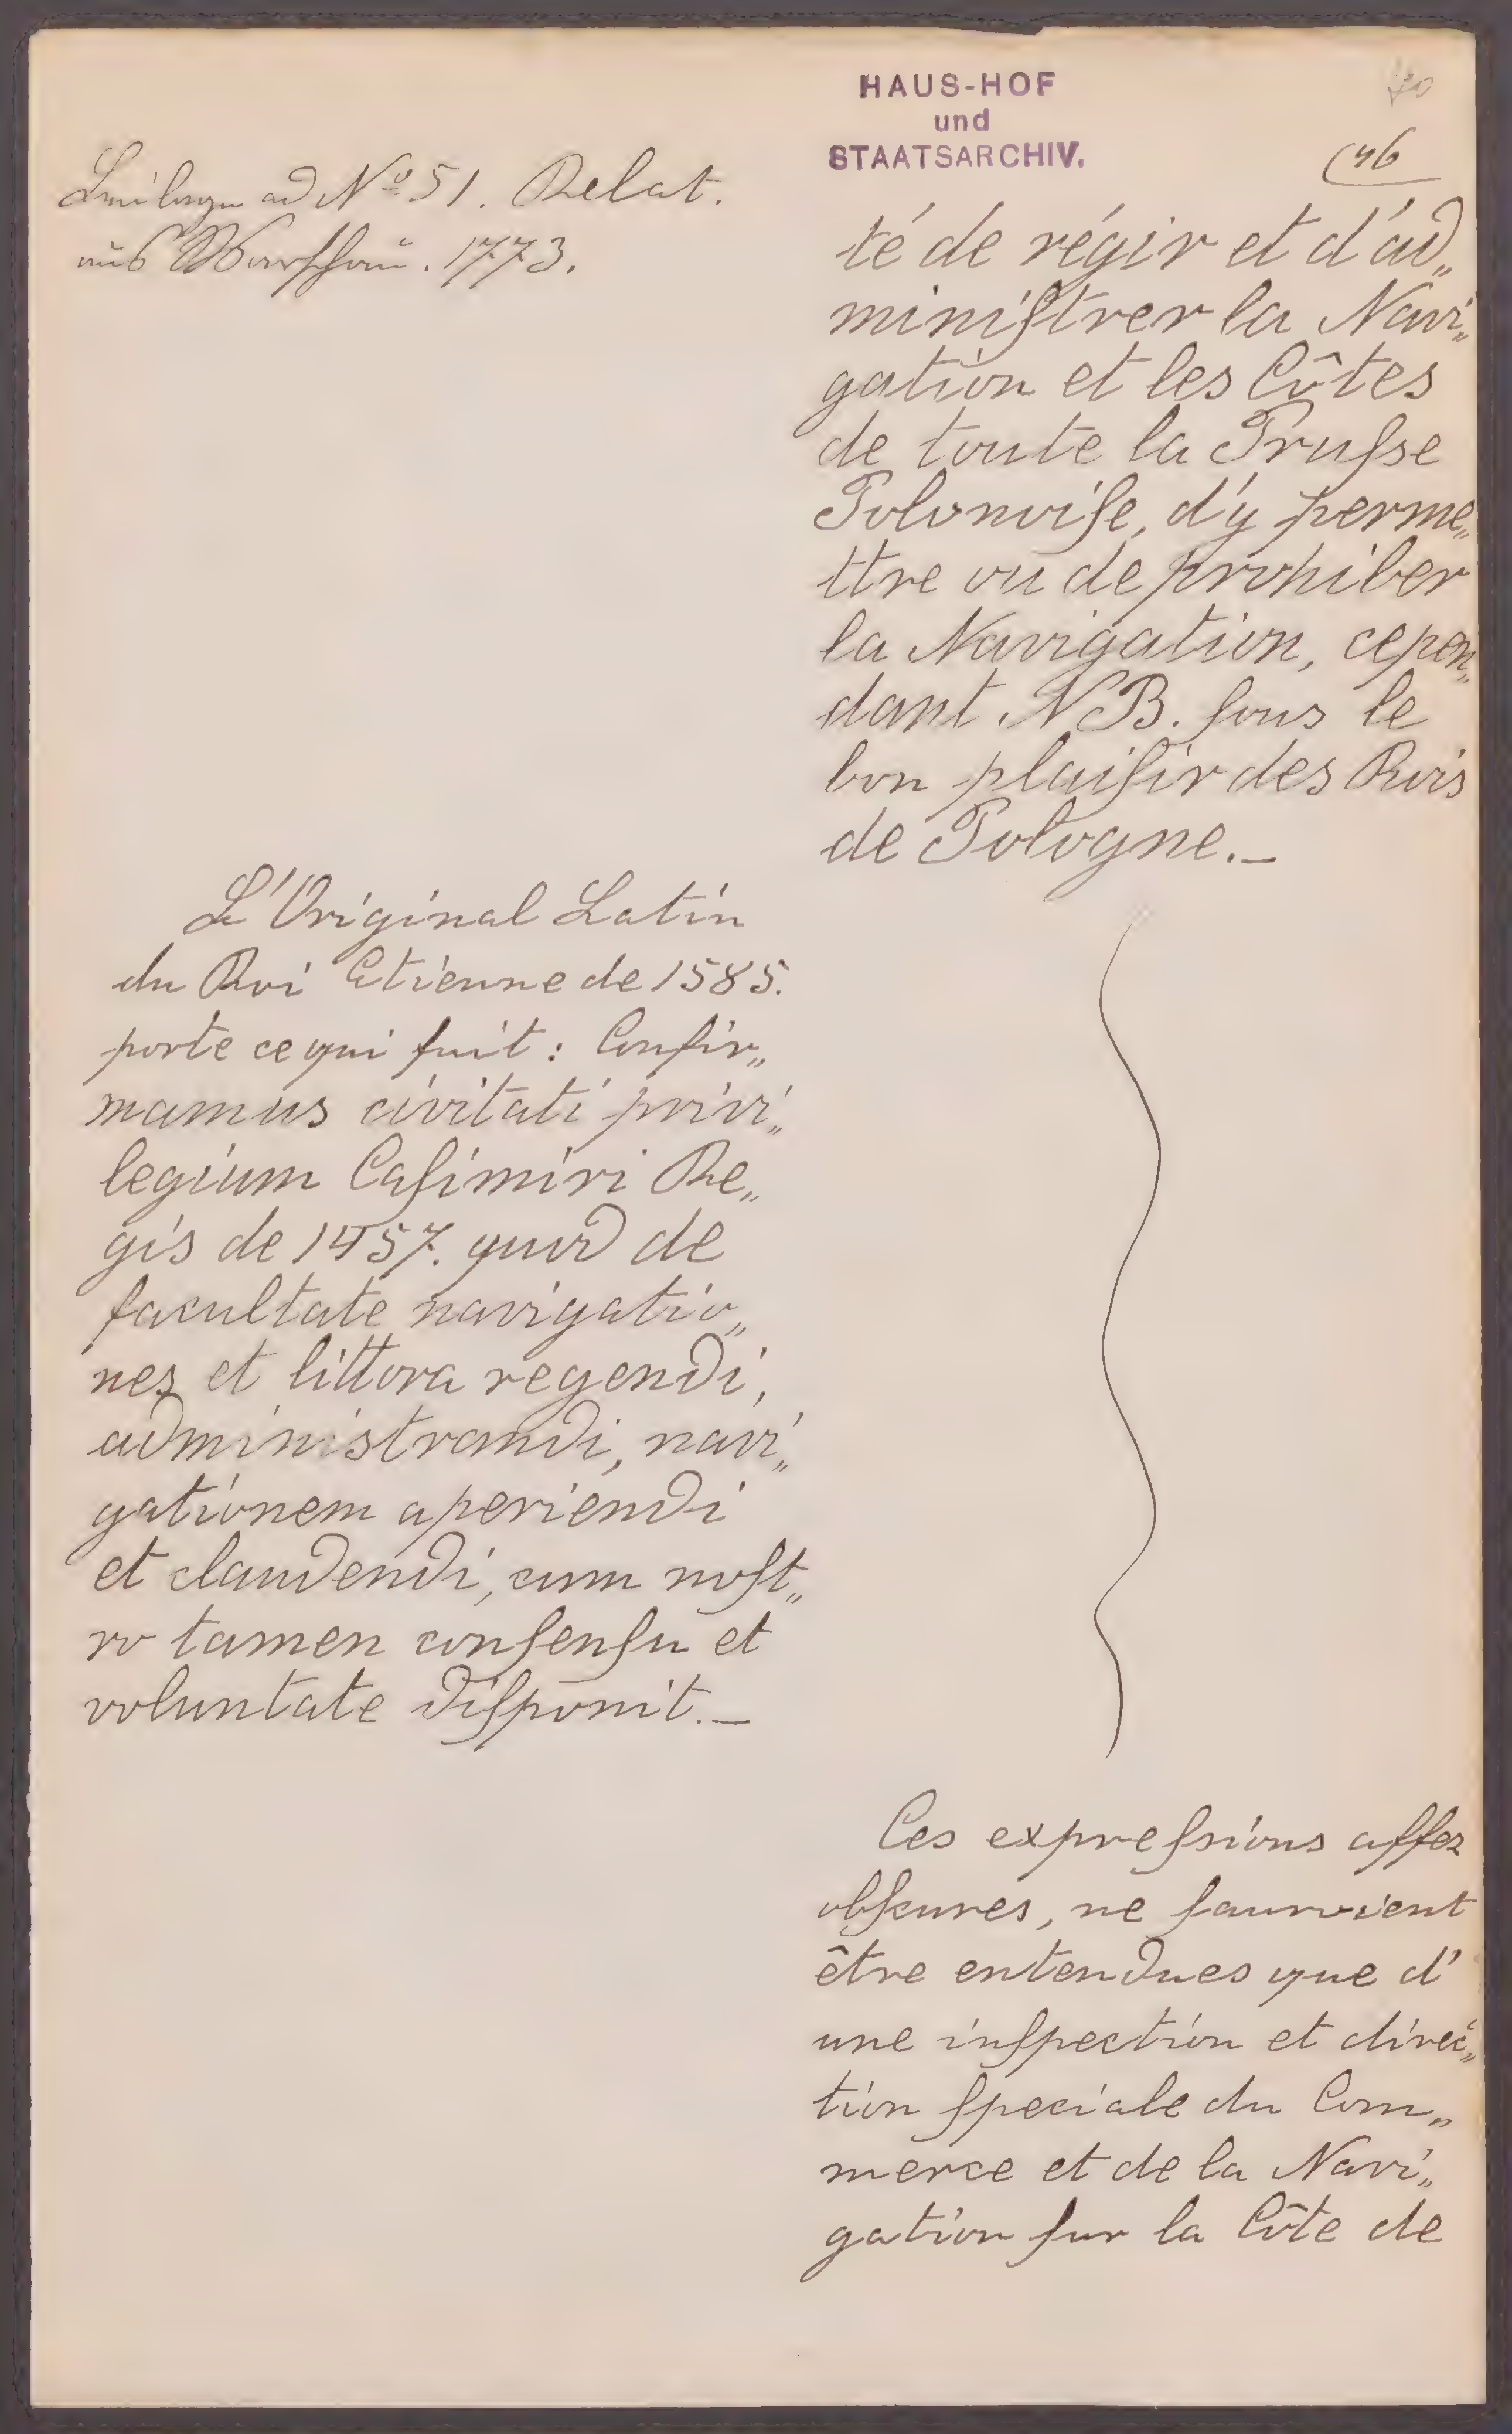 HAUS-HOF
und
STAATSARCHIV.
46
Beilage ad Nº 51. Relat.
aus Warschau. 1773.
té de régir et d'ad„
miniſtrer la Navi„
gation et les Côtes
de toute la Pruſse
Polonoiſe, d'y perme„
ttre ou de prohiber
la Navigation, cepen„
dant NB. ſous le
bon plaiſir des Rois
de Pologne._
L'Original Latin
du Roi Etienne de 1585.
porte ce qui ſuit: Confir„
mamus civitati privi„
legium Caſimiri Re„
gis de 1457. quod de
facultate navigatio„
nes et littora regendi,
administrandi, navi„
gationem aperiendi
et claudendi, cum noſt„
ro tamen conſenſu et
voluntate diſponit._
Ces expreſsions aſſez
obſcures, ne ſauroient
être entendues que d'
une inſpection et direc„
tion ſpeciale du Com„
merce et de la Navi„
gation ſur la Côte de